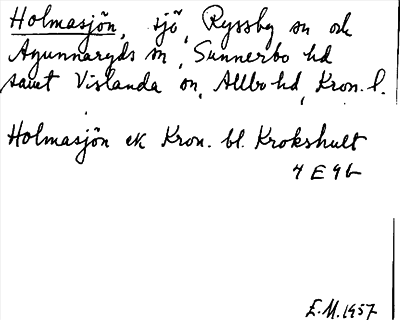 Holmasjön, sjö, Ryssby sn och
Agunnaryds sn, Sunnerbo hd
samt Vislanda sn, Allbo hd, Kron. l.
Holmasjön ek Kron. bl. Krokshult
4 E 9 b
E.M. 1957